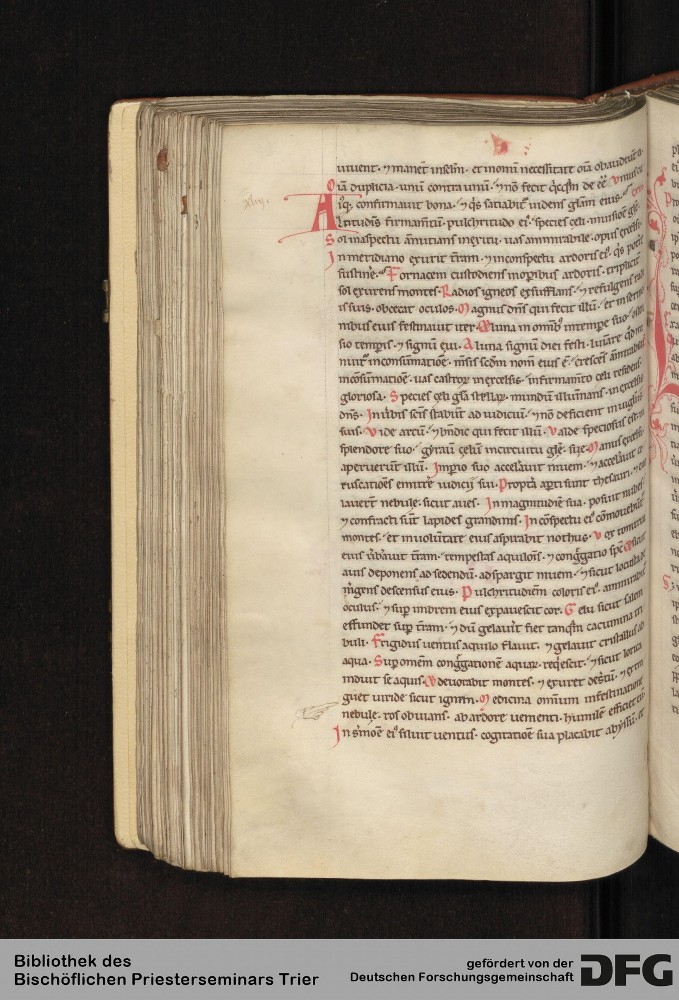 xliij.
uiuent · ⁊ manent in sclm̄ · et in om̄i necessitate oīa obaudiunt ei ·
Oīa duplicia · unū contra unū · ⁊ nō fecit q̄cq̄m de eē · Vniuscu
iꝰq; confirmauit bona · ⁊ qis satiabit̄ uidens glām eius ·
Altitudinis firmam̄tū · pulchritudo eiꝰ · species celi · in uisiōe glē ·
Sol in aspectu annūtians in exitu · uas ammirabile · opus excelsi ·
In meridiano exurit tr̄am · ⁊ in conspectu ardoris eiꝰ · qis poterit
sustine · Fornacem custodiens in opibus ardoris · tripliciter
sol exurens montes · Radios igneos exsufflans · ⁊ refulgens radi
is suis · obcecat oculos · Magnus dn̄s qui fecit illū · et in sermo
nibus eius festinauit iter · Et luna in om̄ibꝰ in tempe suo · osten
sio temp̄is · ⁊ signū eui · A luna signū diei festi · luminare qd mi
nuit̄ in consūmatiōe · m̄sis scd̄m nom̄ eius ē · crescens ammirabiliter
in cōsūmatiōe · uas castroꝝ in excelsis · in firmam̄to celi resplendens
gloriosa · Species celi gl̄a stellaꝝ · mundū illuminans · in excelsis
dn̄s · In ūbis sc̄i stabūt ad iudiciū · ⁊ nō deficient in uigiliis
suis · Vide arcū · ⁊ bn̄dic qui fecit illū · Valde speciosus est in
splendore suo · gyrauit celum in circuitu gl̄e suę · Manus excelsi
aperuerunt illū · Imperio suo accelauit niuem · ⁊ accelerat co
ruscatiōes emittere iudicij sui · Propt̄a apti sunt thesauri · ⁊ euo
lauert̄ nebulę sicut aues · In magnitudinē sua · posuit nubes
⁊ confracti sunt lapides grandinis · In cōspectu eiꝰ cōmouebunt̄
montes · et in uoluntate eius aspirabit nothus · Vox tonitrui
eius ūbauit tr̄am · tempestas aquilonis · ⁊ congregatio spc̄ · Et sicut
auis deponens ad sedendū · adspargit niuem · ⁊ sicut locusta de
m̄gens descensus eius · Pulchritudinem coloris eiꝰ · ammirabit̄
oculus · ⁊ sup imbrem eius expauescit cor · Gelu sicut salem
effundet sup tr̄am · ⁊ dū gelauerit fiet tanq̄m cacumina tri
buli · Frigidus uentus aquilo flauit · ⁊ gelauit cristallus ab
aqua · Sup omēm congregationē aquaꝝ · reqescit · ⁊ sicut lorica
induit se aquis · Et deuorabit montes · ⁊ exuret desertū · ⁊ extin
guet uiride sicut ignem · Medicina omnium in festinatione
nebulę · ros obuians · ab ardore uementi · humilē efficiet eū
In s̄moē eiꝰ siluit uentus · cogitatiōe sua placabit abyssū · et
Bibliothek des
Bischöflichen Priesterseminars Trier
gefördert von der
Deutschen Forschungsgemeinschaft
DFG